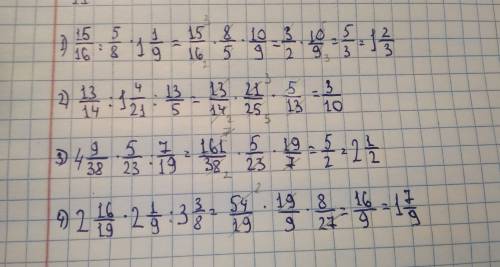 1) 15/16 : 5/8 · 1 1/9 = 15/16 · 8/5 · 10/9 = 3/2 · 10/9 = 5/3 = 1 2/3
2) 13/14 : 1 4/21 : 13/5 = 13/14 · 21/25 · 5/13 = 3/10
3) 4 9/38 · 5/23 : 7/19 = 161/38 · 5/23 · 19/7 = 5/2 = 2 1/2
4) 2 16/19 · 2 1/9 : 3 3/8 = 54/19 · 19/9 · 8/27 = 16/9 = 1 7/9